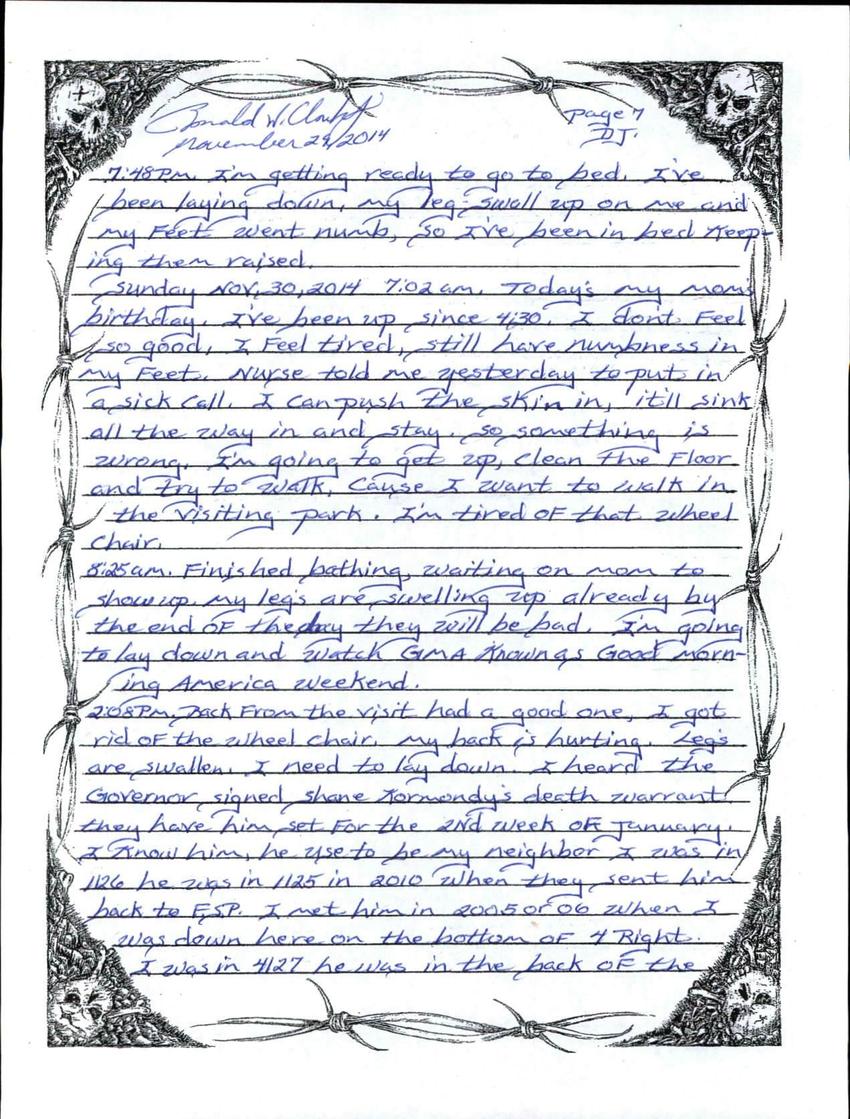 Ronald W. Clark Jr
November 29, 2014
page 7
DJ.
7:48 P.m. I'm getting ready to go to bed. I've
been laying down, my leg swell up on me and
my Feet went numb, so I've been in bed Keep-
ing them raised.
Sunday Nov, 30, 2014 7:02 am. Today's my mom's
birthday. I've been up since 4:30. I dont Feel
so good, I Feel tired, still have numbness in
my Feet. Nurse told me yesterday to put in
a sick call. I can push the skin in, it'll sink
all the way in and stay. so something is
wrong. I'm going to get up, clean the Floor
and try to walk, Cause I want to walk in
the visiting park. I'm tired of that wheel
chair.
8:25 am. Finished bathing, waiting on mom to
show up. my leg's are swelling up already by
the end of the day they will be bad. I'm going
to lay down and watch GMA Known as Good morn-
ing America weekend.
2:08 Pm, Back From the visit had a good one, I got
rid of the wheel chair. my back is hurting. Leg's
are swallen. I need to lay down. I heard the
Governor signed Shane Kormondy's death warrant.
they have him set For the 2nd week of January.
I Know him, he use to be my neighbor I was in
1126 he was in 1125 in 2010 when they sent him
back to F.S.P. I met him in 2005 or 06 when I
was down here on the bottom of 4 Right.
I was in 4127 he was in the back of the